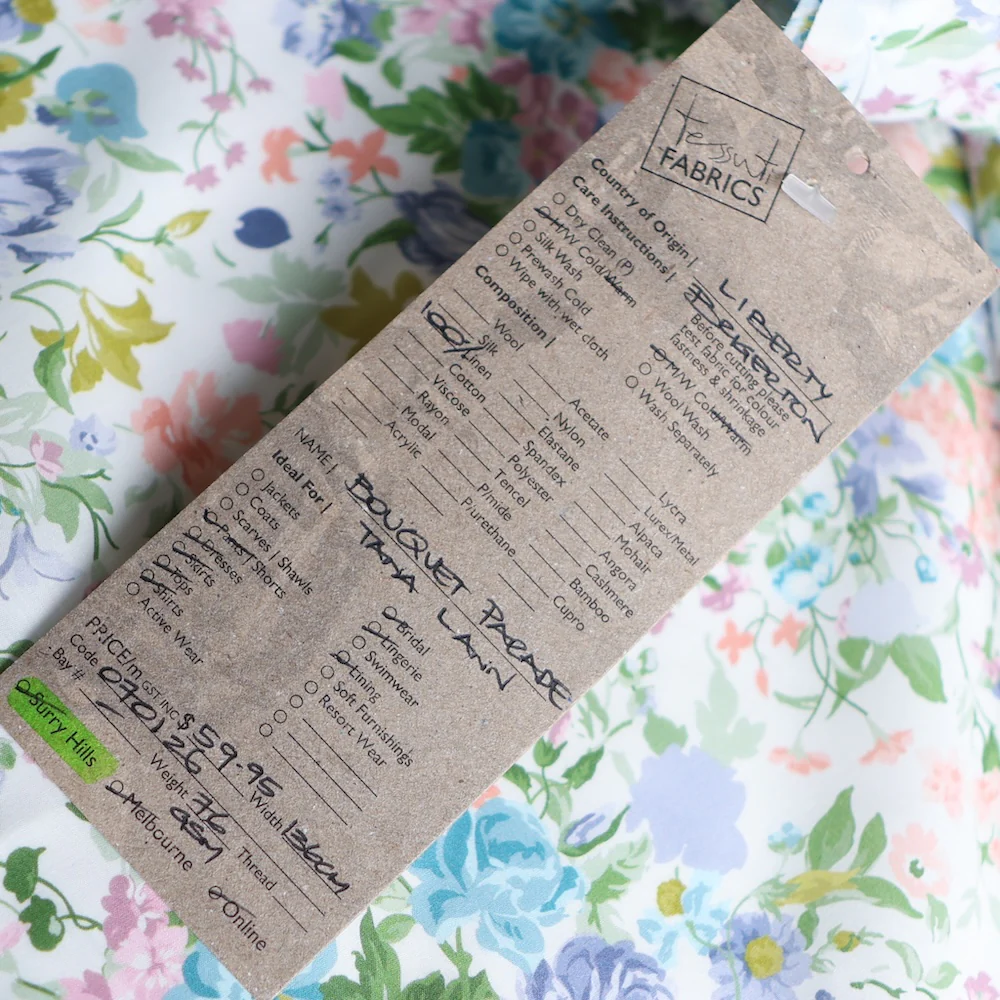 Tessuti
FABRICS
Country of Origin|
LIBERTY
Care Instructions|
BRIGERTON
Dry Clean (P)
H/W Cold/Warm
Silk Wash
Prewash Cold
Wipe with wet cloth
Before cutting please
test fabric for colour
fastness & shrinkage
M/W Cold/Warm
Wool Wash
Wash Separately
Composition|
Wool
Silk
Linen
100% Cotton
Viscose
Rayon
Modal
Acrylic
Acetate
Nylon
Elastane
Spandex
Polyester
Tencel
P/mide
P/urethane
Lycra
Lurex/Metal
Alpaca
Mohair
Angora
Cashmere
Bamboo
Cupro
NAME| BOUQUET PARADE
TANA LAWN
Ideal For|
Jackets
Coats
Scarves | Shawls
Pants | Shorts
Dresses
Skirts
Tops
Shirts
Active Wear
Bridal
Lingerie
Swimwear
Lining
Soft Furnishings
Resort Wear
PRICE/m GST INC $59-95
Code 070126
Width 136cm
Bay #
Weight 76
GSM
Thread
Surry Hills
Melbourne
Online